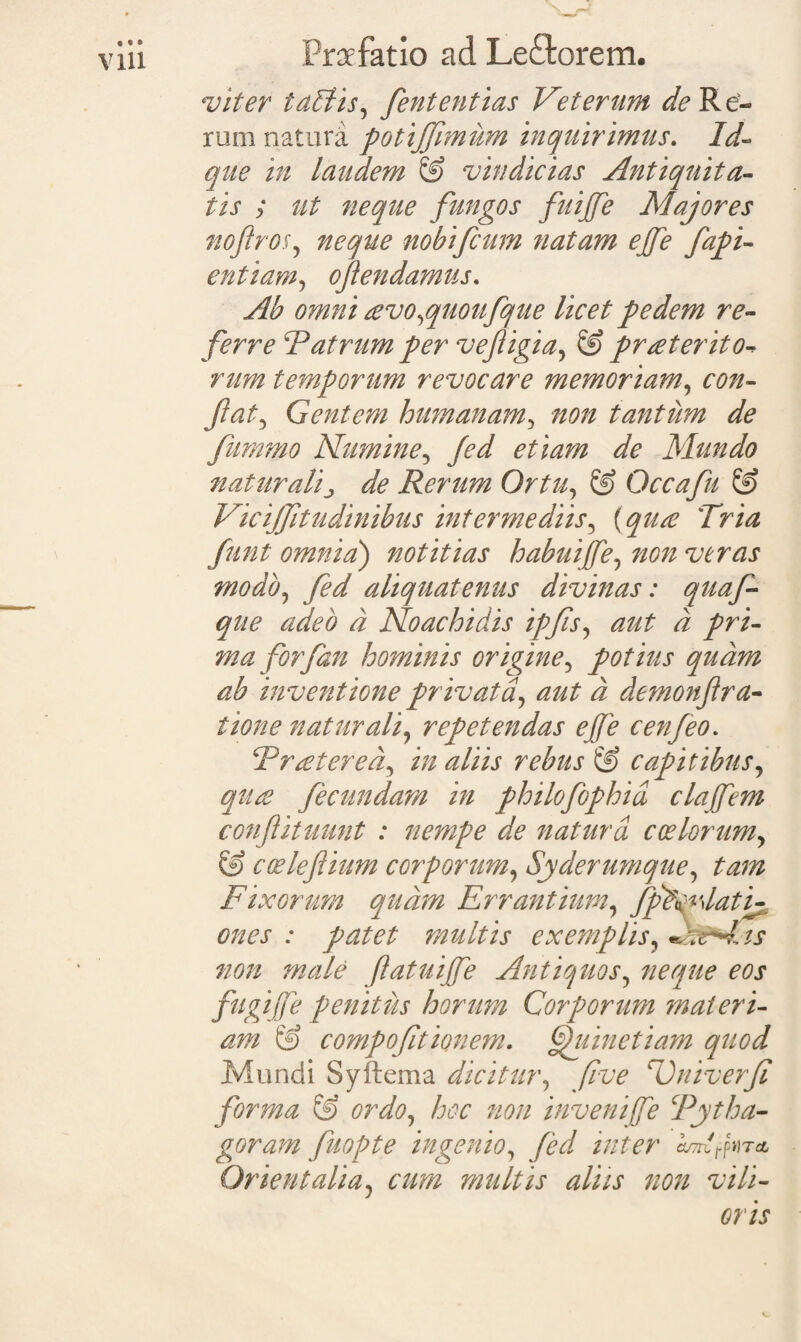 viii Præfatio ad Lectorem.
viter tactis, ſententias Veterum de Re-
rum naturâ potiſſimùm inquirimus. Id-
que in laudem & vindicias Antiquita-
tis ; ut neque fungos fuiſſe Majores
noſtros, neque nobiſcum natam eſſe ſapi-
entiam, oſtendamus.
Ab omni ævo,quouſque licet pedem re-
ferre Patrum per veſtigia, & præterito-
rum temporum revocare memoriam, con-
ſtat, Gentem humanam, non tantùm de
ſummo Numine, ſed etiam de Mundo
naturali, de Rerum Ortu, & Occaſu &
Viciſſitudinibus intermediis, (quæ Tria
ſunt omnia) notitias habuiſſe, non veras
modò, ſed aliquatenus divinas : quaſ-
que adeò à Noachidis ipſis, aut à pri-
ma forſan hominis origine, potius quàm
ab inventione privatâ, aut à demonſtra-
tione naturali, repetendas eſſe cenſeo.
Præterea, in aliis rebus & capitibus,
quæ ſecundam in philoſophiâ claſſem
conſtituunt : nempe de naturâ cœlorum,
& cœleſtium corporum, Syderumque, tam
Fixorum quàm Errantium,
ones : patet multis exemplis,
non malè ſtatuiſſe Antiquos, neque eos
fugiſſe penitùs horum Corporum materi-
am & compoſitionem. Quinetiam quod
Mundi Syſtema dicitur, ſive Univerſi
forma & ordo, hoc non inveniſſe Pytha-
goram ſuopte ingenio, ſed inter
Orientalia, cum multis aliis non vili-
oris